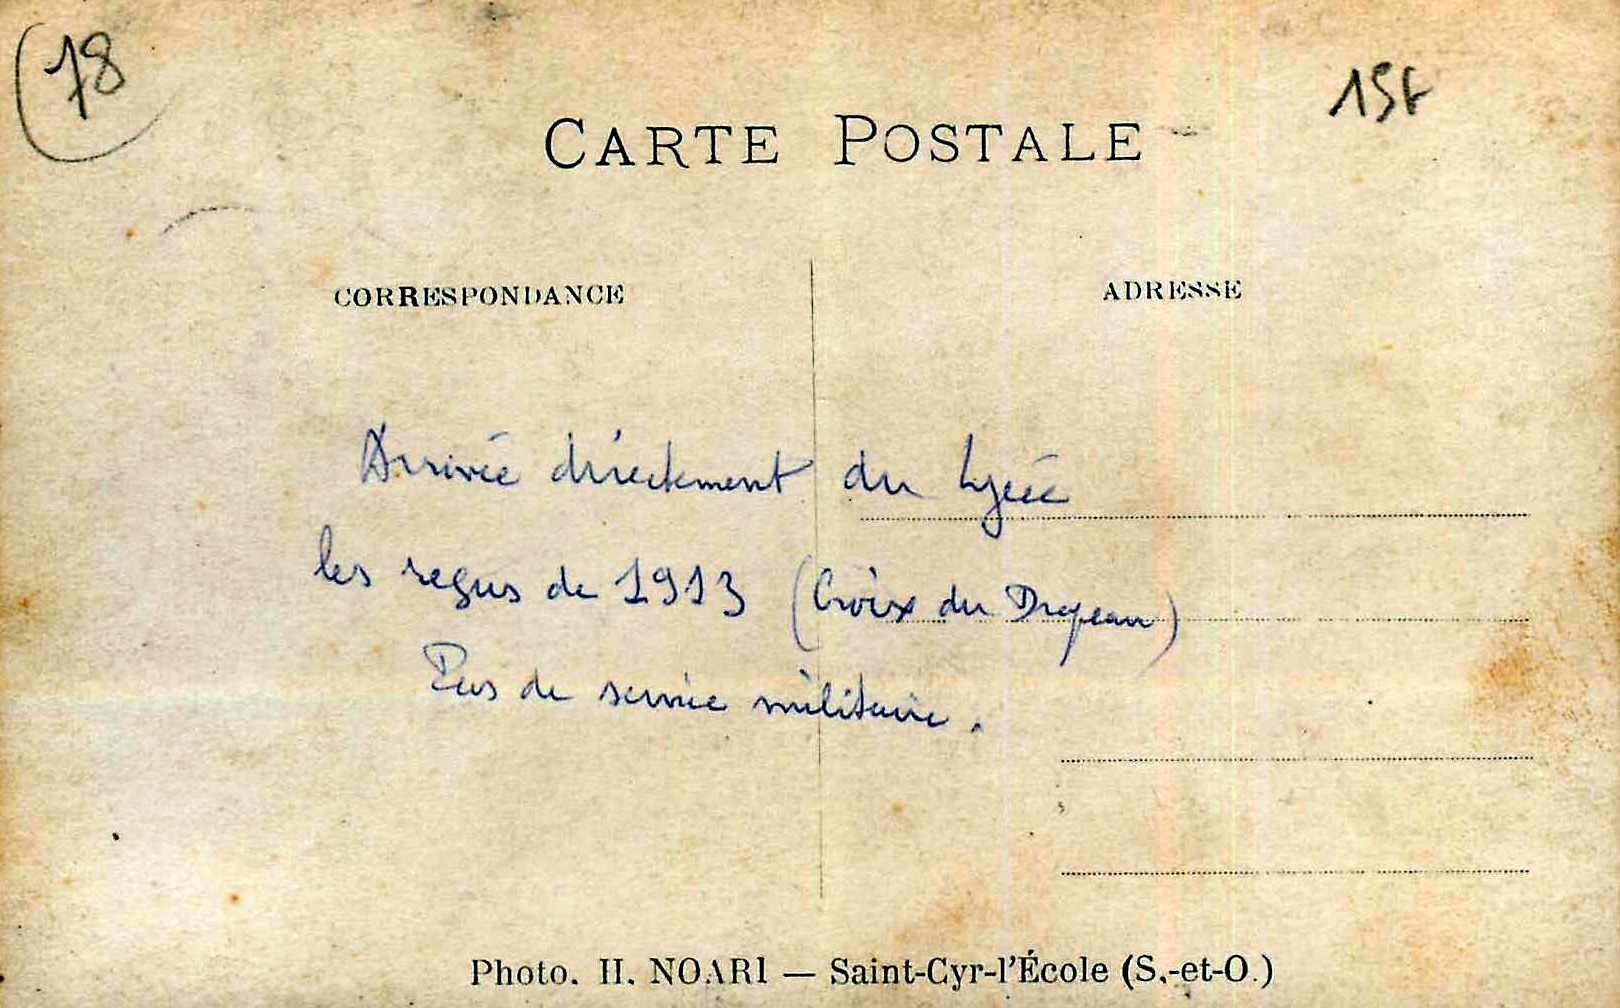 78
15F
CARTE POSTALE
CORRESPONDANCE
ADRESSE
Arrivée directement du Lycée
les reçus de 1913 (Croix du Drapeau)
Pas de service militaire.
Photo. H. NOARI — Saint-Cyr-l'École (S.-et-O.)